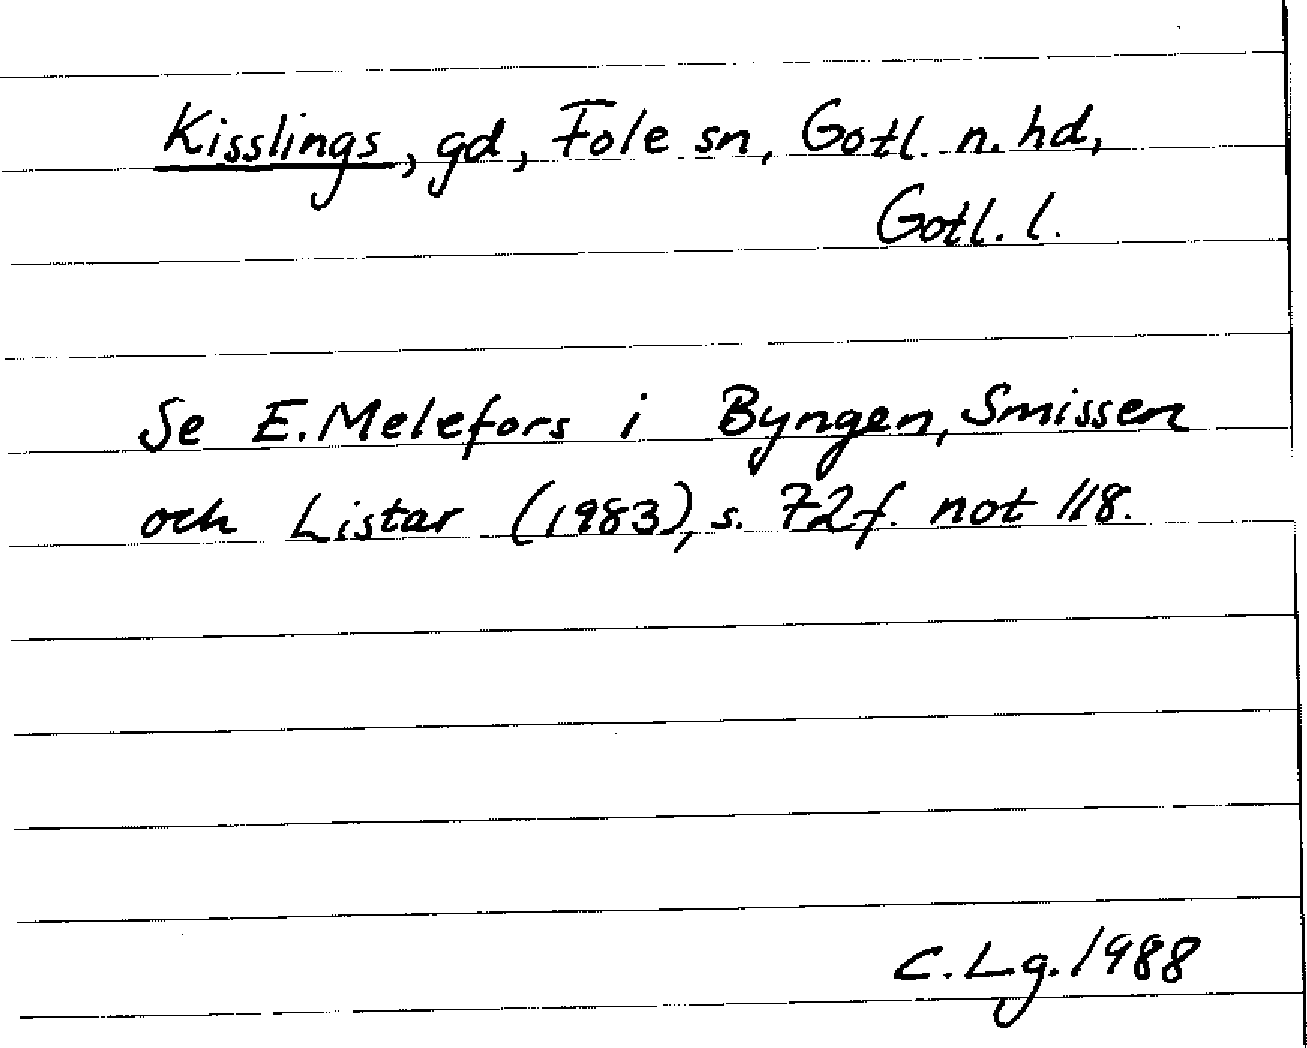 Kisslings, gd, Fole sn, Gotl. n. hd,
Gotl. l.
Se E. Melefors i Byngen, Smissen
och Listar (1983), s. 72f. not 118.
C. Lg. 1988